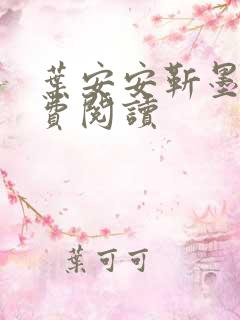 葉安安靳墨
費閱讀
葉可可